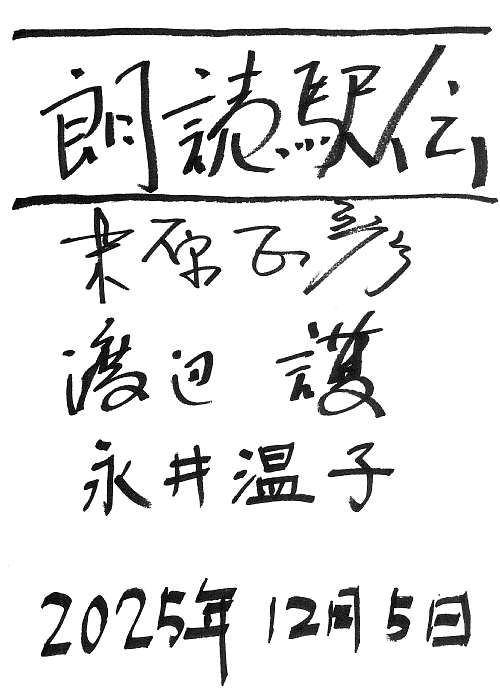 朗読駅伝
末原正彦
渡辺 護
永井温子
2025年 12月 5日